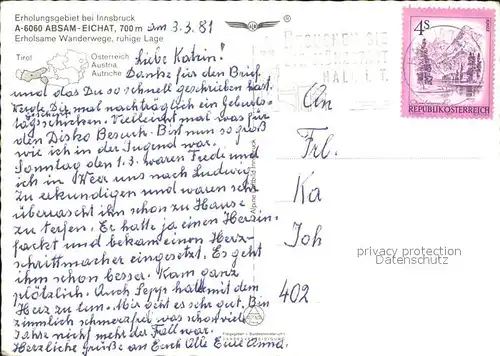 Erholungsgebiet bei Innsbruck
A-6060 ABSAM-EICHAT, 700 m
Erholsame Wanderwege, ruhige Lage
am 3.3.81
Tirol
Österreich
Austria
Autriche
BESUCHEN SIE
HALL I. T.
4s
REPUBLIK ÖSTERREICH
Liebe Katrin!
Danke für den Brief
und das Du so schnell geschrieben hast.
Werde Dir mal nachträglich ein Geburts-
tagsgeschenk schicken. Vielleicht mal was für
den Disko Besuch. Bist nun so groß
wie ich in der Jugend war.
Sonntag den 1.3. waren Frede und
ich in Weer uns nach Ludwig
zu erkundigen und waren sehr
überrascht ihn schon zu Hause
zu treffen. Er hatte ja einen Herzin-
farkt und bekam einen Herz-
schrittmacher eingesetzt. Es geht
ihm schon besser. Kam ganz
plötzlich. Auch Sepp hat mit dem
Herz zu tun. Mir geht es sehr gut. Bin
ziemlich schmerzfrei was schon viele
Jahre nicht mehr der Fall war.
Herzliche Grüße an Euch Alle Eure Anna.
An
Frl.
Ka
Joh
402
Alpine Luftbild Innsbruck
privacy protection
watermark